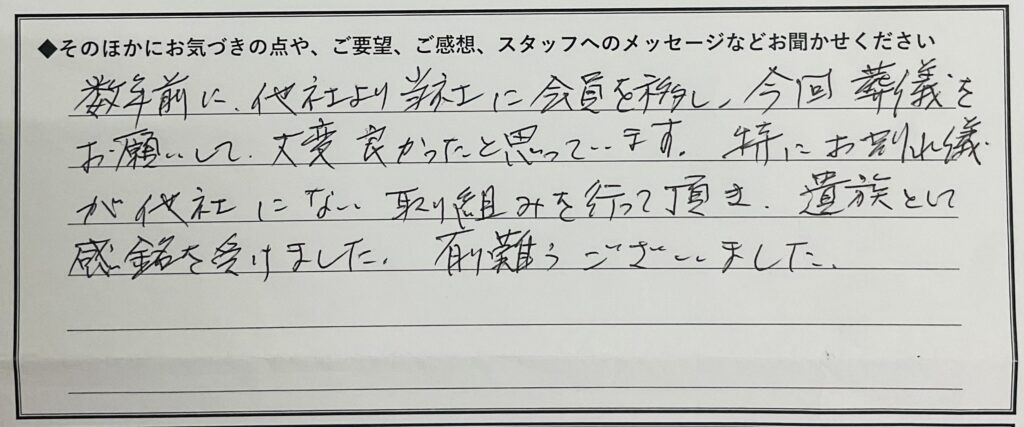 ◆そのほかにお気づきの点や、ご要望、ご感想、スタッフへのメッセージなどお聞かせください
数年前に、他社より当社に会員を移し、今回葬儀を
お願いして、大変良かったと思っています。特にお別れ儀
が他社にない取り組みを行って頂き、遺族として
感銘を受けました。有難うございました。